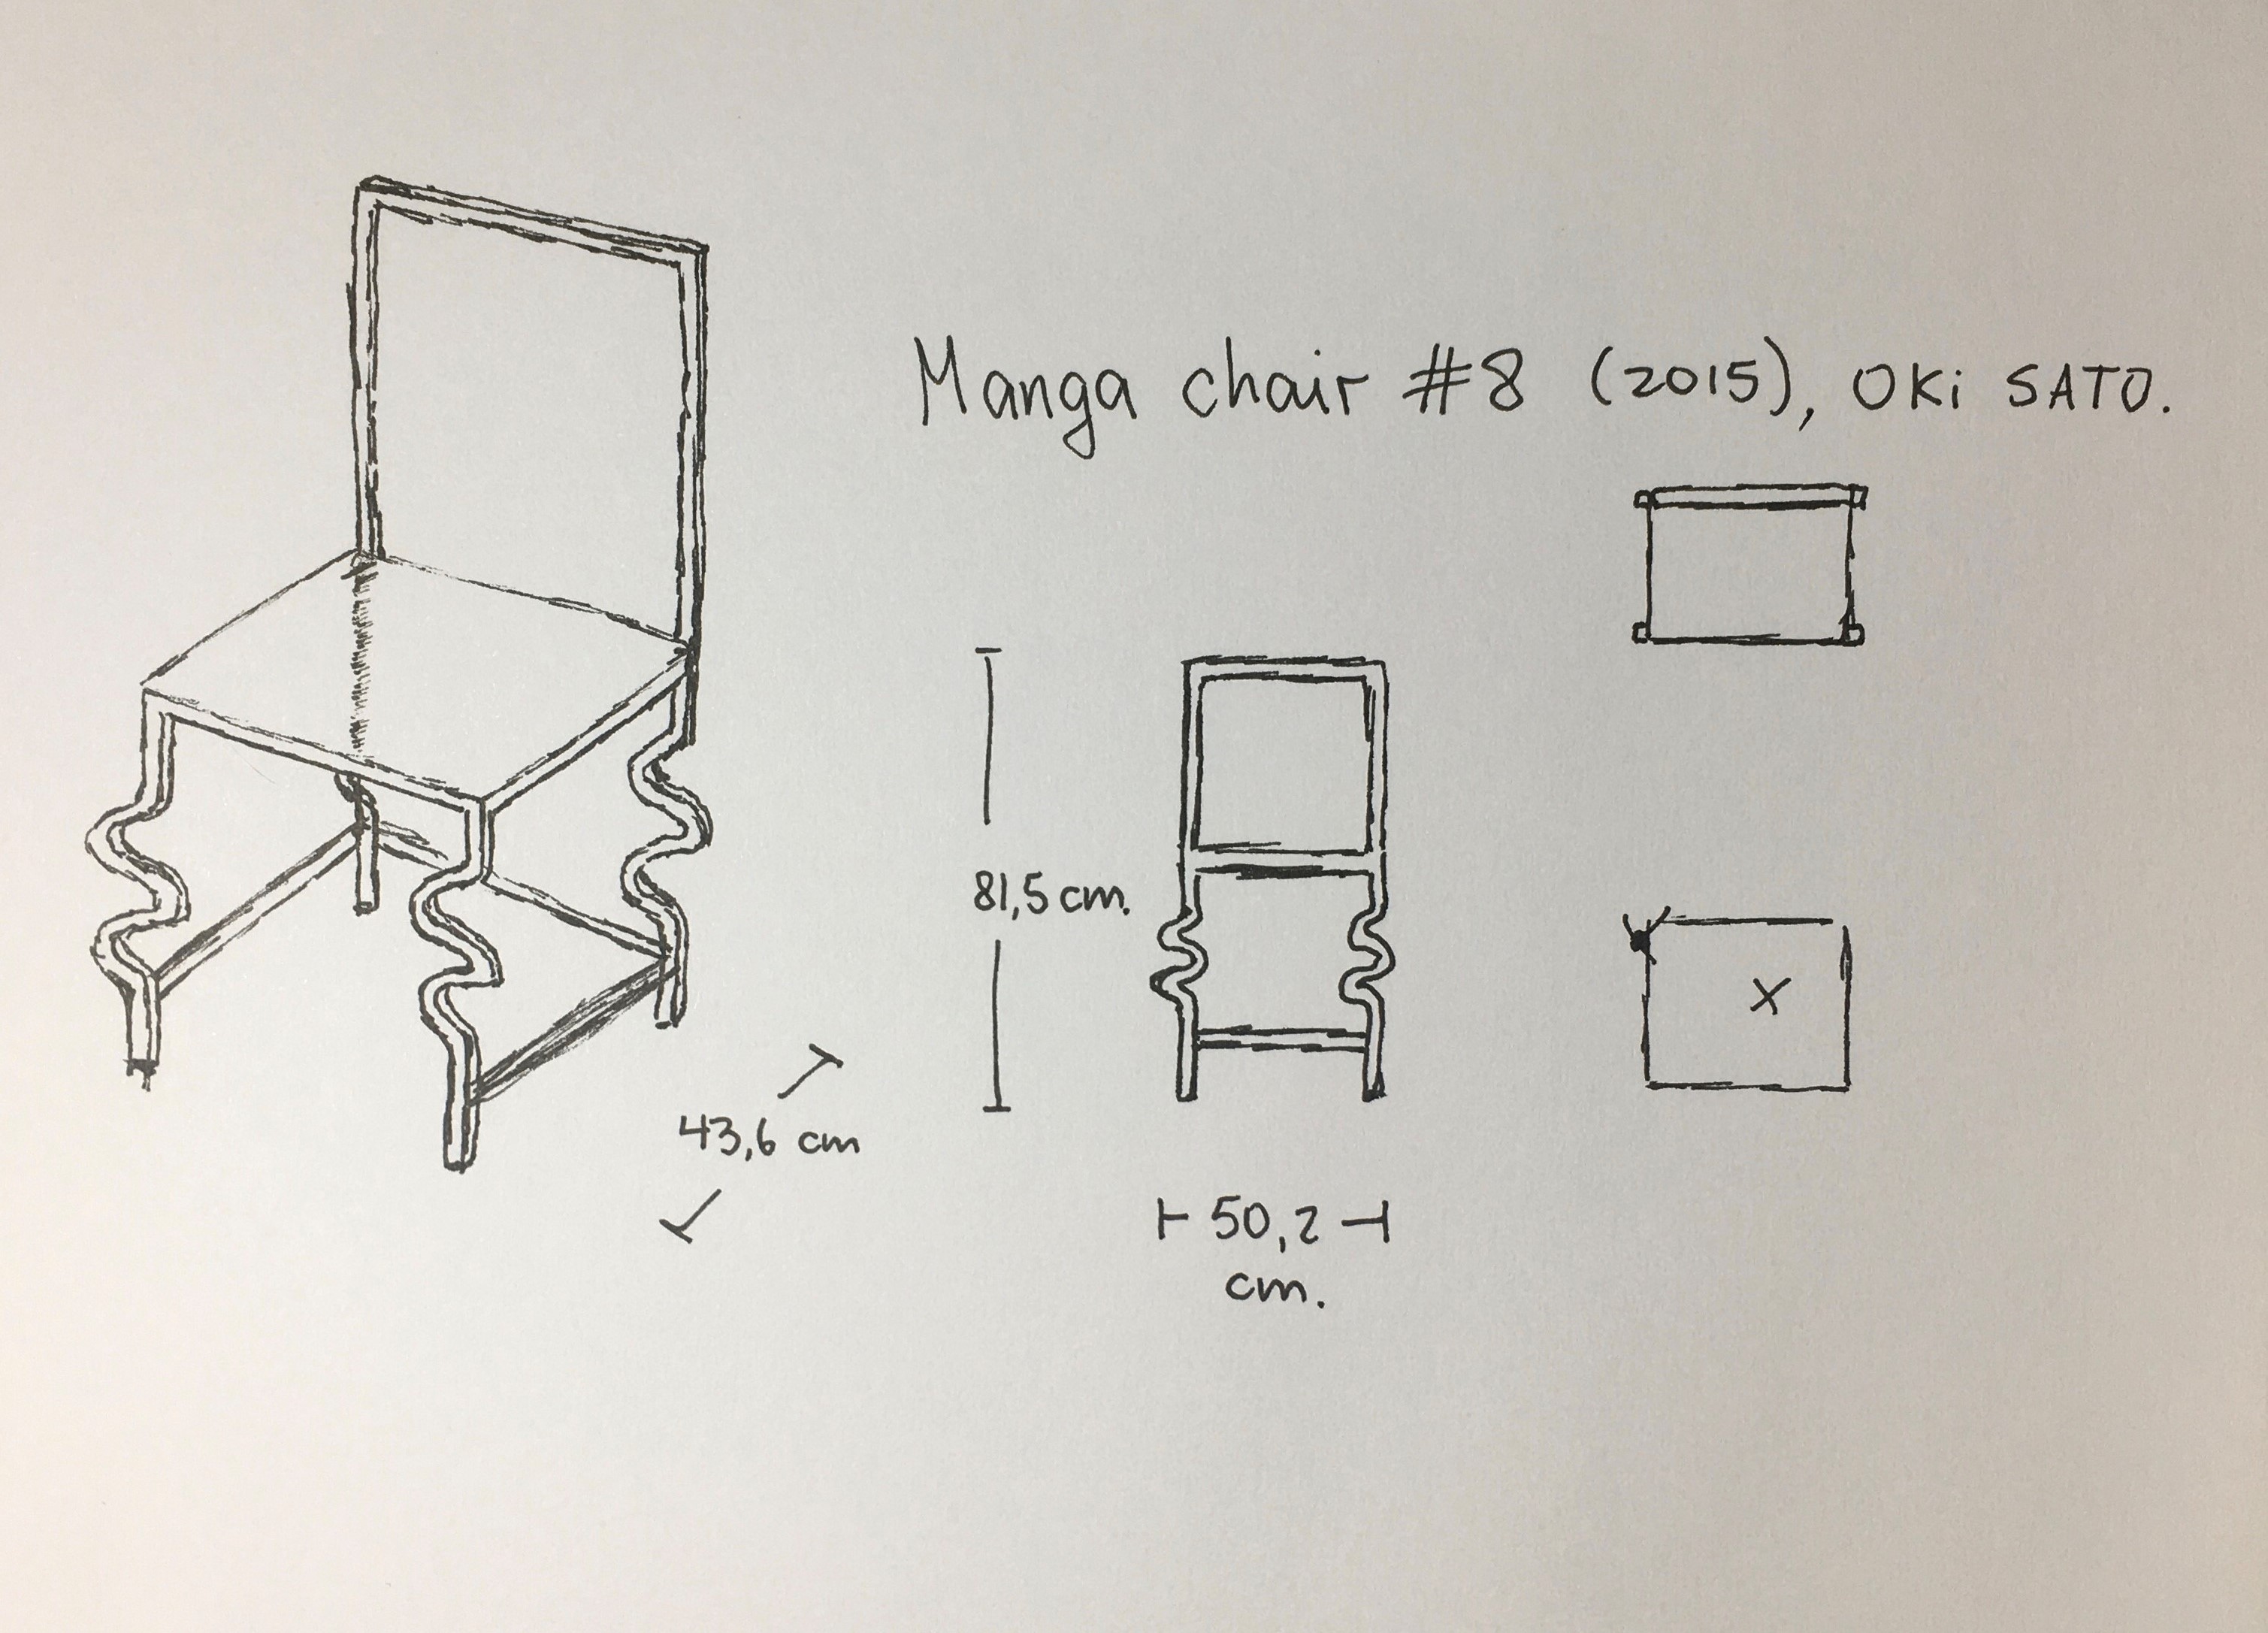 Manga chair #8 (2015), OKi SATO.
81,5 cm.
43,6 cm
50,2
cm.
X